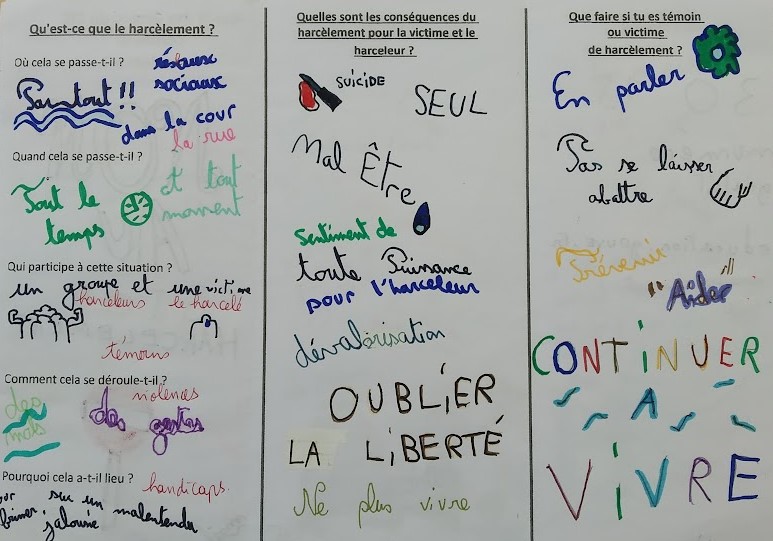 Qu'est-ce que le harcèlement ?
Où cela se passe-t-il ?
réseaux
sociaux
Partout !!
dans la cour
la rue
Quand cela se passe-t-il ?
Tout le
temps
et tout
moment
Qui participe à cette situation ?
un groupe et une victime
harceleurs
le harcelé
témoins
Comment cela se déroule-t-il ?
des
mots
violences
des gestes
Pourquoi cela a-t-il lieu ?
handicaps.
sur un malentendu
jalousie
Quelles sont les conséquences du
harcèlement pour la victime et le
harceleur ?
SUICIDE
SEUL
Mal Être
Sentiment de
toute Puissance
pour l'harceleur
dévalorisation
OUBLiER
LA LiBERTÉ
Ne plus vivre
Que faire si tu es témoin
ou victime
de harcèlement ?
En parler
Pas se laisser
abattre
Prévenir
"Aider"
CONTiNUER
A
ViVRE